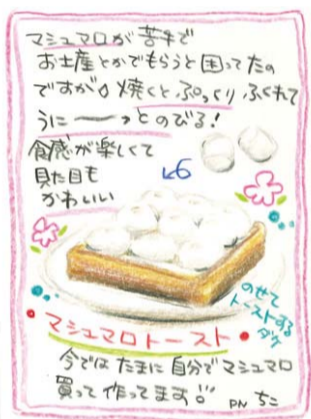 マシュマロが苦手で
お土産とかでもらうと困ってたの
ですが焼くとぷっくりふくれて
うに〜っとのびる!
食感が楽しくて
見た目も
かわいい
のせて
トーストする
ダケ
マシュマロトースト
今ではたまに自分でマシュマロ
買って作ってます
PN ちこ